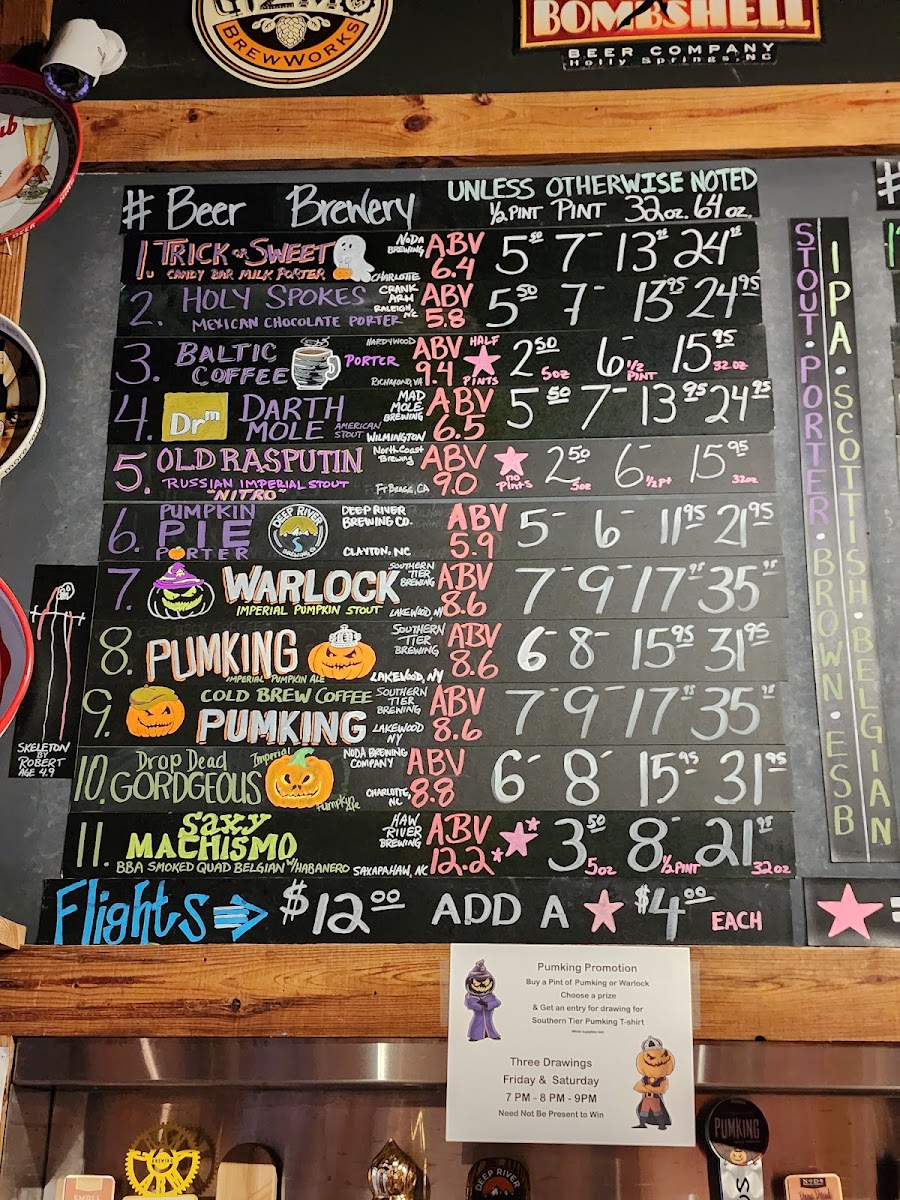 BREWWORKS
BOMBSHELL
BEER COMPANY
Holly Springs, NC
# Beer Brewery UNLESS OTHERWISE NOTED
½ PINT PINT 32 oz. 64 oz.
1. TRICK or SWEET NoDa BREWING ABV 6.4 5⁵⁰ 7⁻ 13⁹⁵ 24⁹⁵
CANDY BAR MILK PORTER CHARLOTTE
2. HOLY SPOKES CRANK ARM RALEIGH, NC ABV 5.8 5⁵⁰ 7⁻ 13⁹⁵ 24⁹⁵
MEXICAN CHOCOLATE PORTER
3. BALTIC COFFEE PORTER HARDYWOOD ABV 9.4 HALF PINTS 2⁵⁰ 5oz 6⁻ ½ PINT 15⁹⁵ 32 oz
RICHMOND, VA
4. Drm DARTH MOLE AMERICAN STOUT MAD MOLE BREWING ABV 6.5 5⁵⁰ 7⁻ 13⁹⁵ 24⁹⁵
WILMINGTON
5. OLD RASPUTIN North Coast Brewing ABV 9.0 no Pints 2⁵⁰ 5oz 6⁻ ½ Pt 15⁹⁵ 32oz
RUSSIAN IMPERIAL STOUT
"NITRO" FT BRAGG, CA
6. PUMPKIN PIE PORTER DEEP RIVER BREWING CO. DEEP RIVER BREWING CO. ABV 5.9 5⁻ 6⁻ 11⁹⁵ 21⁹⁵
CLAYTON, NC
7. WARLOCK SOUTHERN TIER BREWING ABV 8.6 7⁻ 9⁻ 17⁹⁵ 35⁹⁵
IMPERIAL PUMPKIN STOUT LAKEWOOD NY
8. PUMKING SOUTHERN TIER BREWING ABV 8.6 6⁻ 8⁻ 15⁹⁵ 31⁹⁵
IMPERIAL PUMPKIN ALE LAKEWOOD, NY
9. COLD BREW COFFEE SOUTHERN TIER BREWING ABV 8.6 7⁻ 9⁻ 17⁹⁵ 35⁹⁵
PUMKING LAKEWOOD NY
10. Drop Dead Imperial NODA BREWING COMPANY ABV 8.8 6⁻ 8⁻ 15⁹⁵ 31⁹⁵
GORDGEOUS Pumpkin Ale CHARLOTTE, NC
11. SAXY MACHISMO HAW RIVER BREWING ABV 12.2 3⁵⁰ 5oz 8⁻ ½ PINT 21⁹⁵ 32 oz
BBA SMOKED QUAD BELGIAN W/HABANERO SAXAPAHAW, NC
Flights $12⁰⁰ ADD A $4⁰⁰ EACH
SKELETON
BY
ROBERT
AGE 49
STOUT · PORTER · BROWN · ESB
IPA · SCOTTISH · BELGIAN
Pumking Promotion
Buy a Pint of Pumking or Warlock
Choose a prize
& Get an entry for drawing for
Southern Tier Pumking T-shirt
Three Drawings
Friday & Saturday
7 PM - 8 PM - 9PM
Need Not Be Present to Win
PUMKING
DEEP RIVER